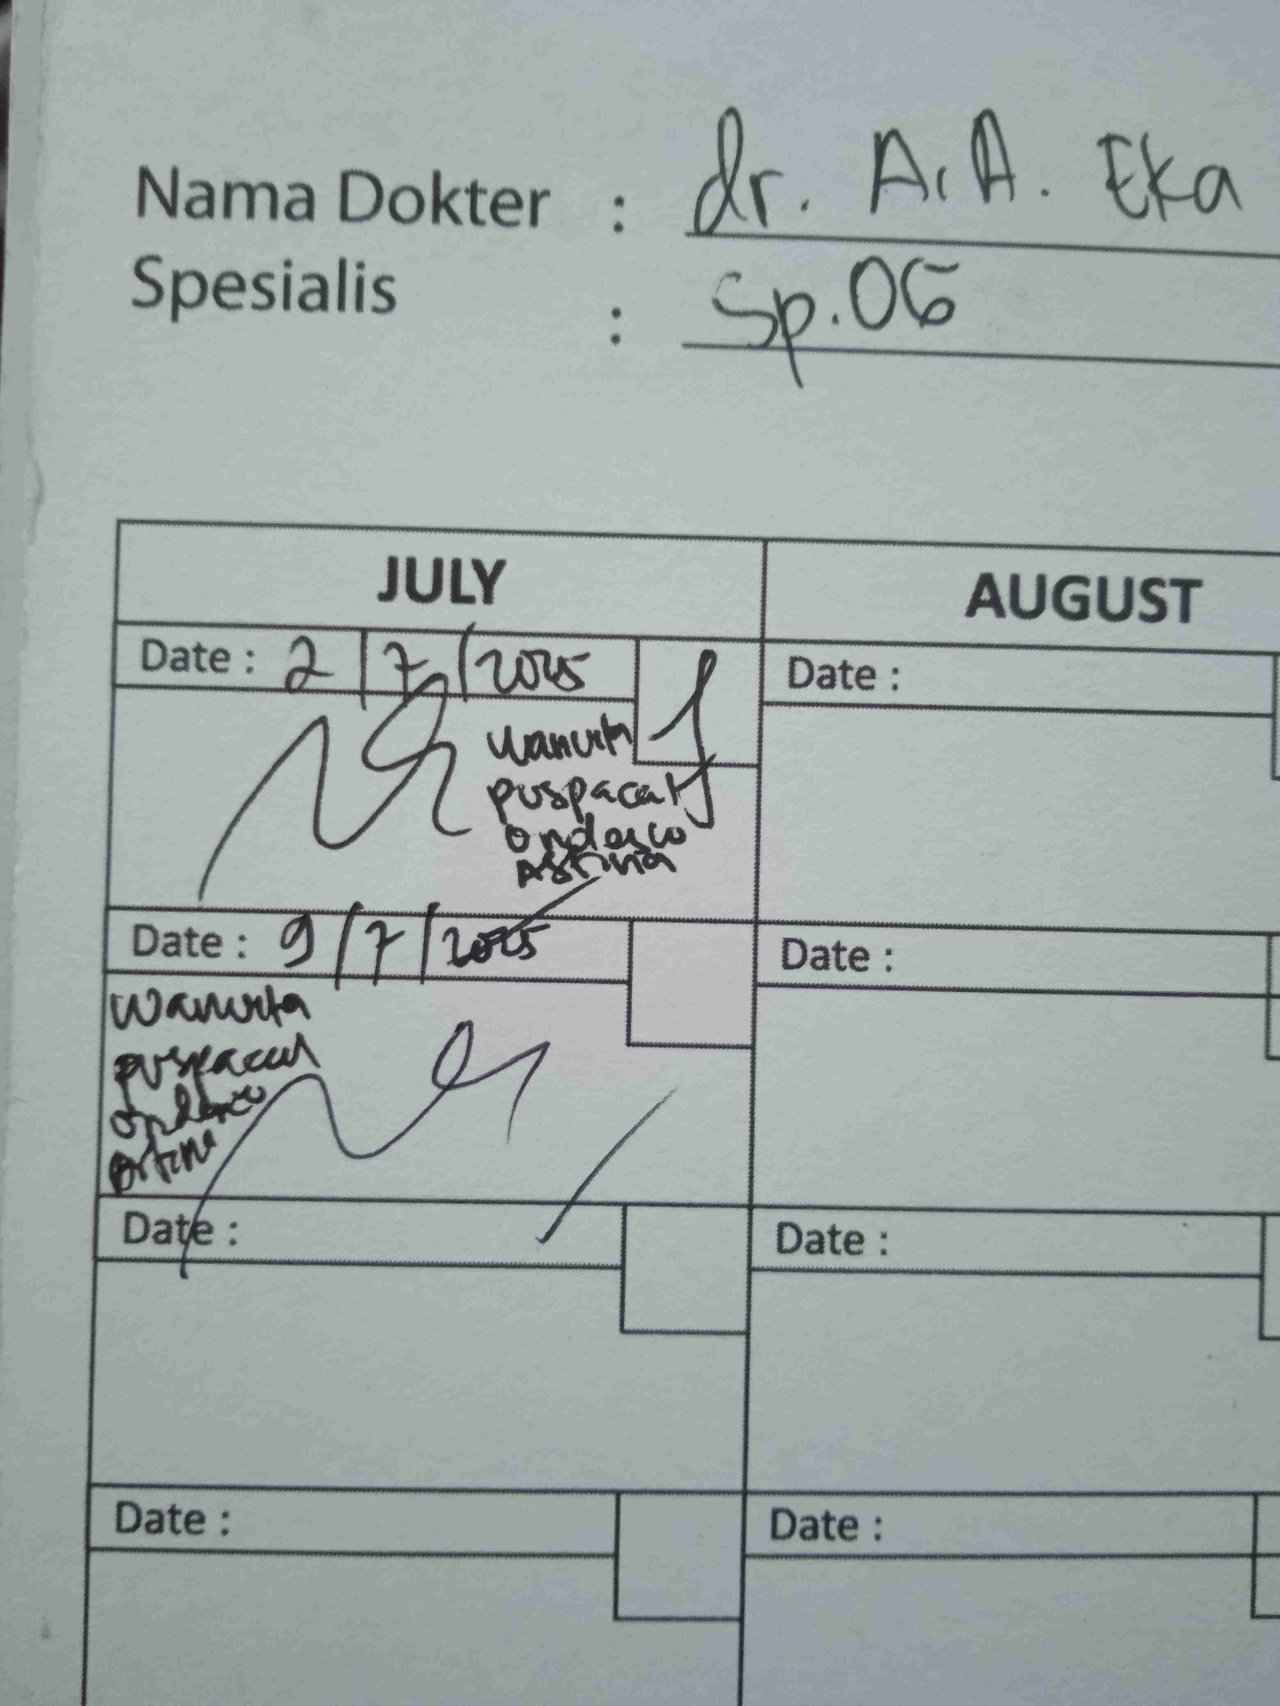 Nama Dokter : dr. A.A. Eka
Spesialis : Sp.OG
JULY
AUGUST
Date : 2/7/2025
Date :
Wanvita
puspacal
ondesco
Astina
Date : 9/7/2025
Date :
Wanvita
puspacal
Date :
Date :
Date :
Date :